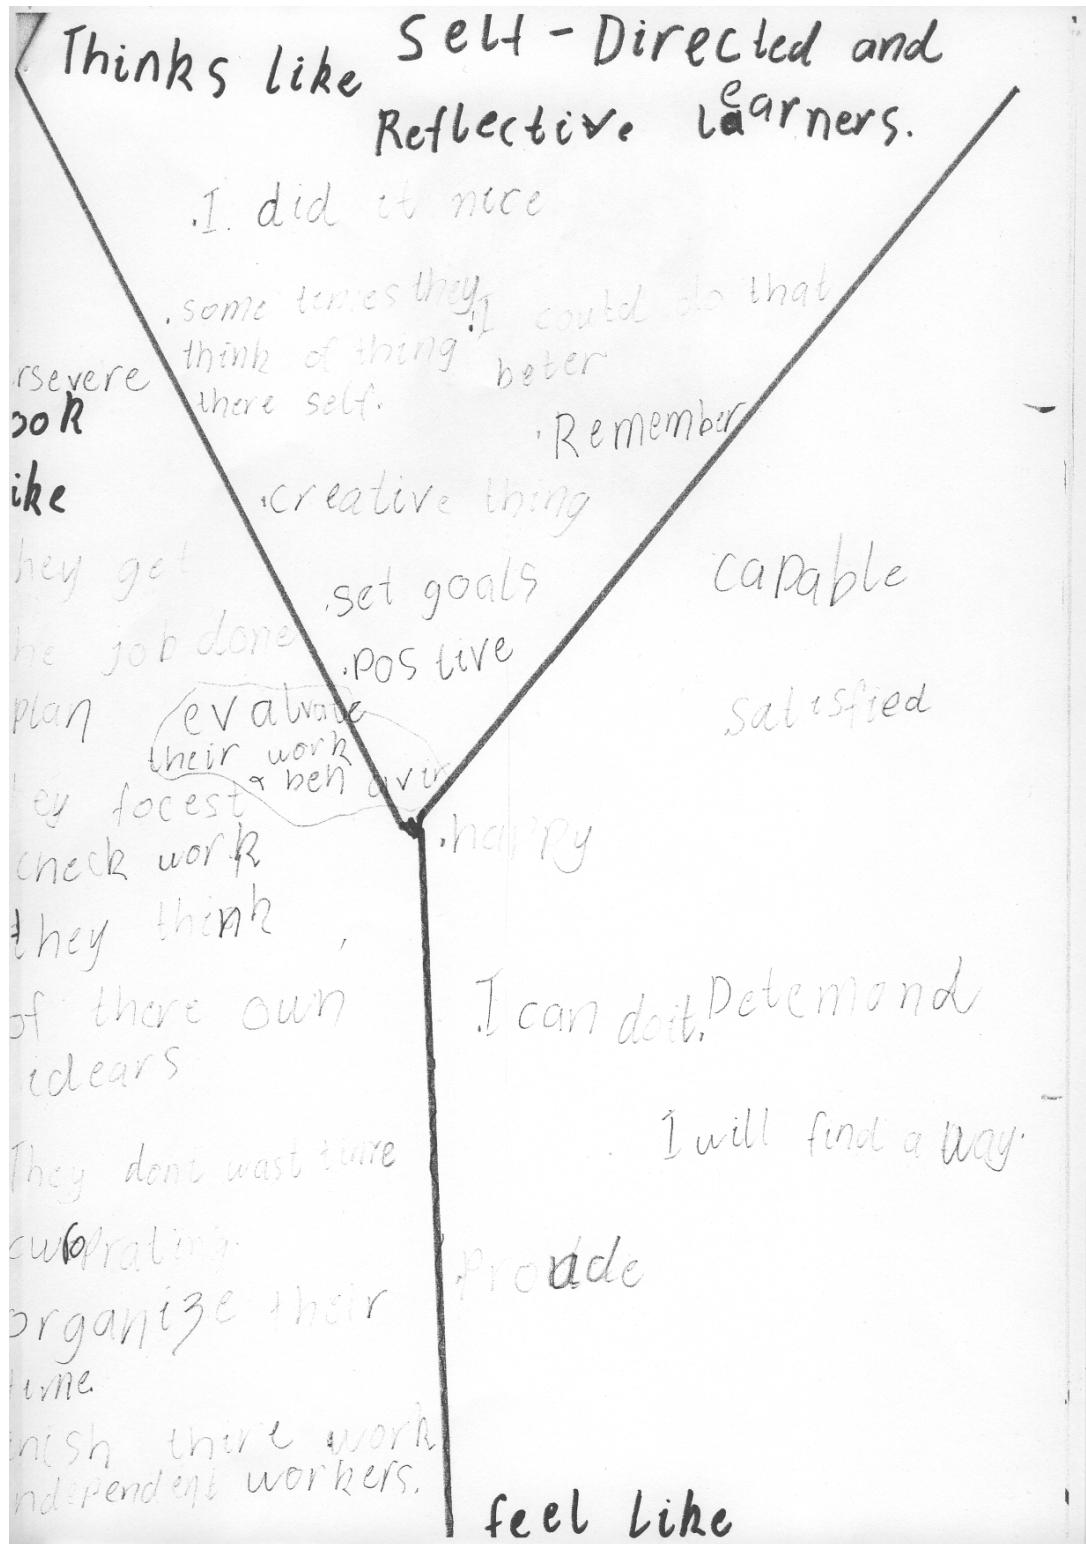 Thinks like
Self-Directed and
Reflective learners.
.I did it nice
.some temes they
think of thing
there self.
.I could do that
beter
.Remember
.creative thing
.set goals
.Postive
rsevere
ook
ike
hey get
he job done
plan
evaluate
their work
& behavir
ey focest
check work
they think
of there own
idears
They dont wast time
organize their
time.
nish there work
ndependent workers.
capable
.satisfied
.happy
.I can do it.
.Detemond
I will find a way.
.Proude
feel like